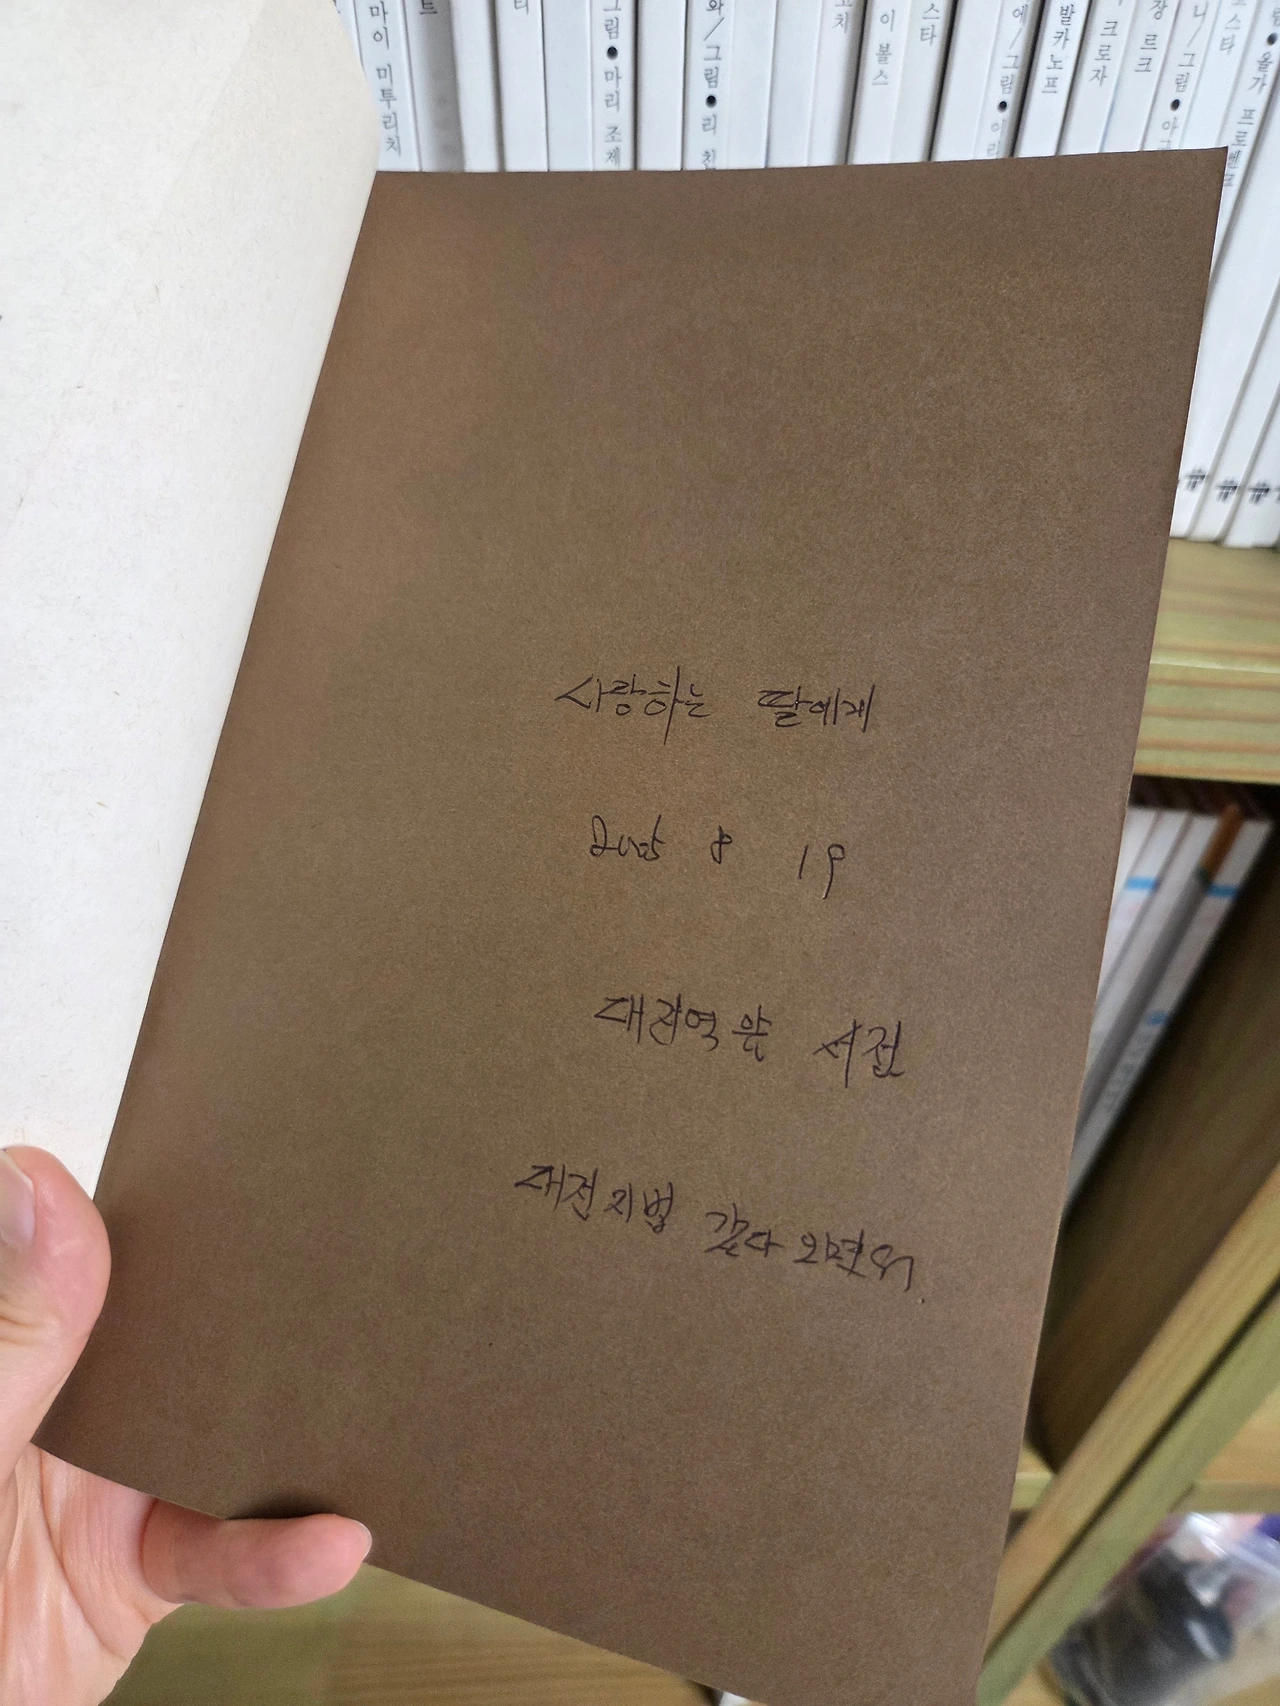 마이 미투리치
트
티
그림●마리 조제
와/그림●리 친
고치
이 볼스
스타
에/그림●이리
발카노프
크로자
장 르크
니/그림●아
스타
올가 프로벤
사랑하는 딸에게
2005 8 19
대전역 앞 서점
대전지법 갔다 오면서.